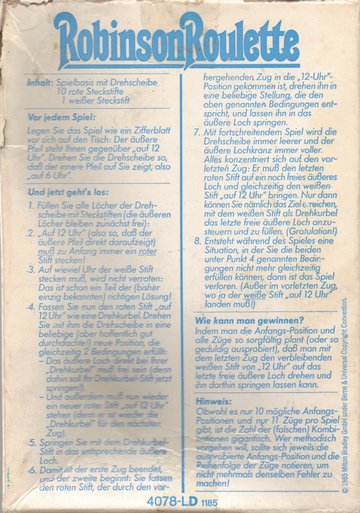 RobinsonRoulette
Inhalt: Spielbasis mit Drehscheibe
10 rote Steckstifte
1 weißer Steckstift
Vor jedem Spiel:
Legen Sie das Spiel wie ein Zifferblatt
vor sich auf den Tisch: Der äußere
Pfeil steht Ihnen gegenüber „auf 12
Uhr". Drehen Sie die Drehscheibe so,
daß der innere Pfeil auf Sie zeigt, also
„auf 6 Uhr".
Und jetzt geht's los:
1. Füllen Sie alle Löcher der Dreh-
scheibe mit Steckstiften (die äußeren
Löcher bleiben zunächst frei):
2. „Auf 12 Uhr" (also so, daß der
äußere Pfeil direkt daraufzeigt)
muß zu Anfang immer ein roter
Stift stecken!
3. Auf wieviel Uhr der weiße Stift
stecken muß, wird nicht verraten:
Das ist schon ein Teil der (bisher
einzig bekannten) richtigen Lösung!
4. Fassen Sie nun den roten Stift „auf
12 Uhr" wie eine Drehkurbel. Drehen
Sie mit ihm die Drehscheibe in eine
beliebige (aber hoffentlich gut
durchdachte!) neue Position, die
gleichzeitig 2 Bedingungen erfüllt:
– Das äußere Loch direkt bei Ihrer
„Drehkurbel" muß frei sein (denn
dahin soll Ihr Drehkurbel-Stift jetzt
springen!).
– Und außerdem muß nun wieder
ein neuer roter Stift „auf 12 Uhr"
stehen (denn er ist wieder die
„Drehkurbel" für den nächsten
Zug).
5. Springen Sie mit dem Drehkurbel-
Stift in das entsprechende äußere
Loch.
6. Damit ist der erste Zug beendet,
und der zweite beginnt: Sie fassen
den roten Stift, der durch den vor-
hergehenden Zug in die „12-Uhr"-
Position gekommen ist, drehen ihn in
eine beliebige Stellung, die den
oben genannten Bedingungen ent-
spricht, und lassen ihn in das
äußere Loch springen.
7. Mit fortschreitendem Spiel wird die
Drehscheibe immer leerer und der
äußere Lochkranz immer voller.
Alles konzentriert sich auf den vor-
letzten Zug: Er muß den letzten
roten Stift auf ein noch freies äußeres
Loch und gleichzeitig den weißen
Stift „auf 12 Uhr" bringen. Nur dann
können Sie nämlich das Ziel erreichen,
mit dem weißen Stift als Drehkurbel
das letzte freie äußere Loch anzu-
steuern und zu füllen. (Gratulation!)
8. Entsteht während des Spieles eine
Situation, in der Sie die beiden
unter Punkt 4 genannten Bedin-
gungen nicht mehr gleichzeitig
erfüllen können, dann ist das Spiel
verloren. (Außer im vorletzten Zug,
wo ja der weiße Stift „auf 12 Uhr"
landen muß!)
Wie kann man gewinnen?
Indem man die Anfangs-Position und
alle Züge so sorgfältig plant (oder so
geduldig ausprobiert), daß man mit
dem letzten Zug den verbleibenden
weißen Stift von „12 Uhr" auf das
letzte freie äußere Loch drehen und
ihn dorthin springen lassen kann.
Hinweis:
Obwohl es nur 10 mögliche Anfangs-
Positionen und nur 11 Züge pro Spiel
gibt, ist die Zahl der (falschen) Kombi-
nationen gigantisch. Wer methodisch
vorgehen will, sollte sich jeweils die
ausprobierte Anfangs-Position und die
Reihenfolge der Züge notieren, um
nicht mehrmals denselben Fehler zu
machen!
4078-LD 1185
© 1985 Milton Bradley GmbH under Berne & Universal Copyright Conventions.